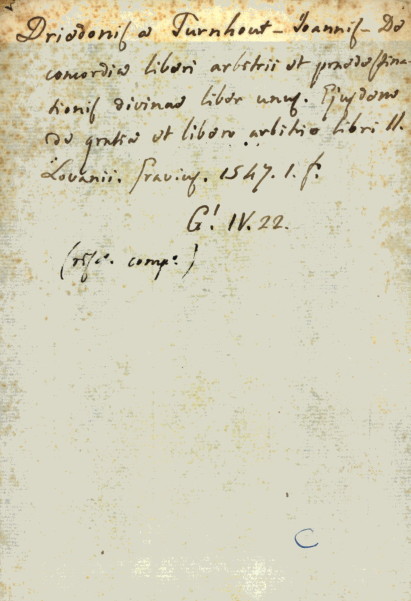 Driedonis a Turnhout - Joannis - De
concordia liberi arbitrii et praedestina-
tionis divinae liber unus. Ejusdem
de gratia et libero arbitrio libri II.
Lovanii. Gravius. 1547. 1. f.
G! IV. 22.
(risc. comp.)
C